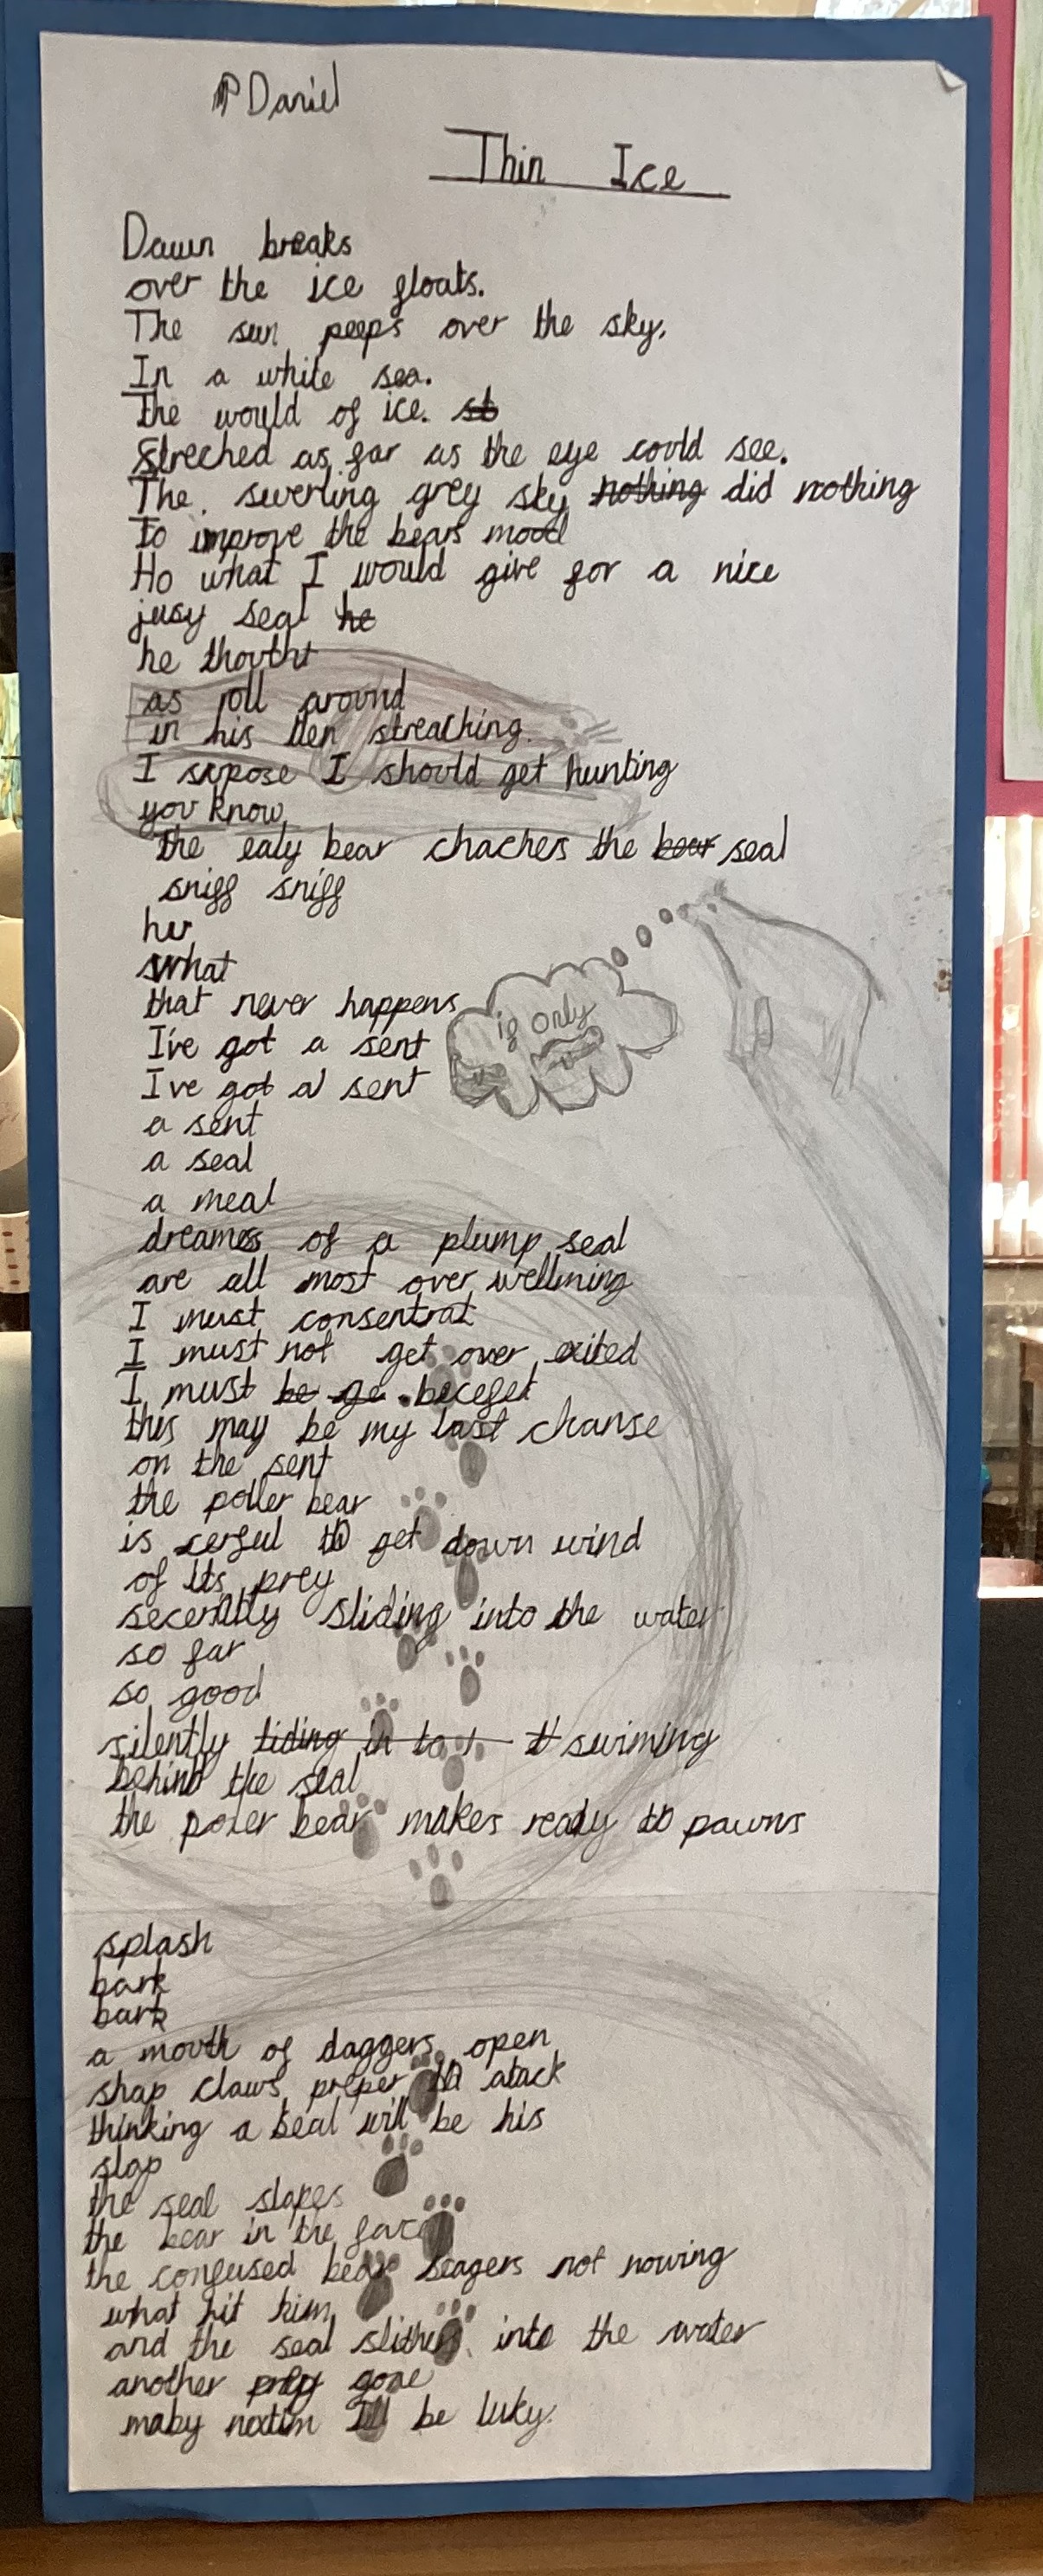 Daniel
Thin Ice
Dawn breaks
over the ice floats.
The sun peeps over the sky.
In a white sea.
The would of ice. st
Streched as far as the eye could see.
The. swerling grey sky nothing did nothing
To improve the bears mood
Ho what I would give for a nice
jusy seal he
he thouth
as roll around
in his den streaching.
I supose I should get hunting
you know
the ealy bear chaches the bear seal
sniff sniff
hu
what
that never happens
I've got a sent
I've got a sent
a sent
a seal
a meal
if only
dreames of a plump seal
are all most over wellming
I must consentrat
I must not get over exited
I must be ge
this may be my last chanse
on the sent
the poller bear
is cerful to get down wind
of its prey
sliding into the water
so far
so good
silently swiming
behind the seal
the poler bear makes ready to pawns
splash
bark
bark
a mouth of daggers open
shap claws preper to atack
thinking a seal will be his
slap
the seal slapes
the bear in the face
the confused bear seagers not nowing
what hit him
and the seal slithers into the water
another prey gone
maby nextim I'll be luky.